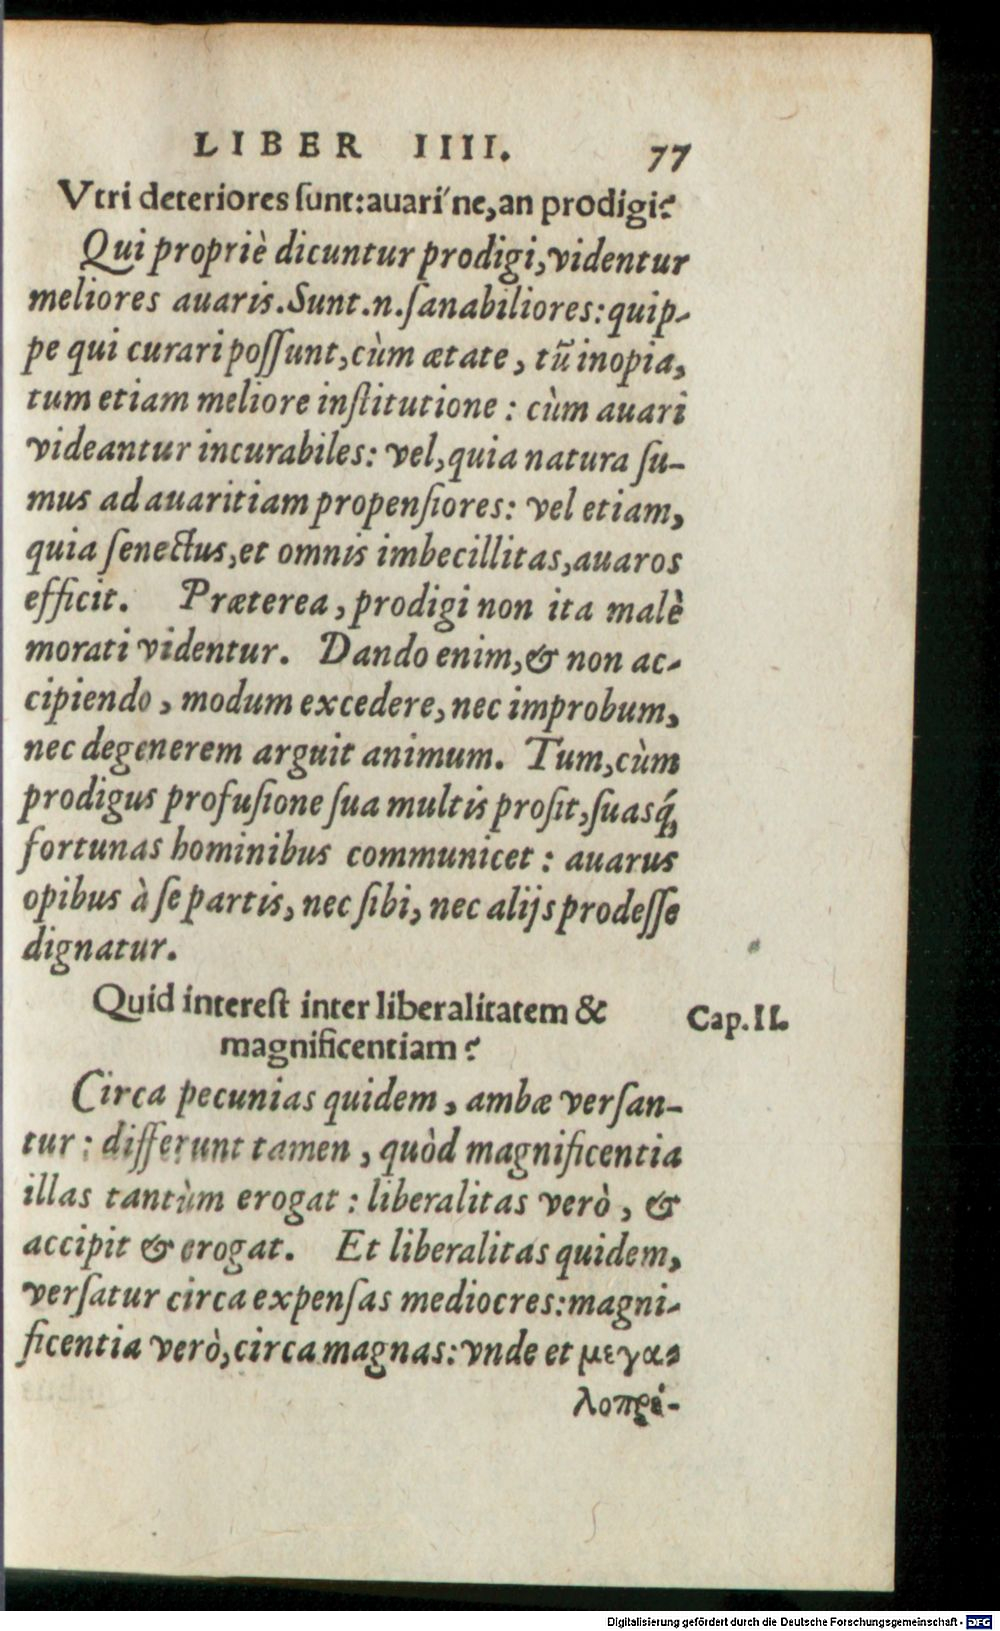 LIBER IIII. 77
Vtri deteriores ſunt: auari´ne, an prodigi?
Qui propriè dicuntur prodigi, videntur
meliores auaris. Sunt .n. ſanabiliores: quip-
pe qui curari poſſunt, cùm ætate, tũ inopia,
tum etiam meliore inſtitutione: cùm auari
videantur incurabiles: vel, quia natura ſu-
mus ad auaritiam propenſiores: vel etiam,
quia ſenectus, et omnis imbecillitas, auaros
efficit. Præterea, prodigi non ita malè
morati videntur. Dando enim, & non ac-
cipiendo, modum excedere, nec improbum,
nec degenerem arguit animum. Tum, cùm
prodigus profuſione ſua multis proſit, ſuasq́;
fortunas hominibus communicet: auarus
opibus à ſe partis, nec ſibi, nec alijs prodeſſe
dignatur.
Quid intereſt inter liberalitatem & Cap. II.
magnificentiam?
Circa pecunias quidem, ambæ verſan-
tur: differunt tamen, quòd magnificentia
illas tantùm erogat: liberalitas verò, &
accipit & erogat. Et liberalitas quidem,
verſatur circa expenſas mediocres: magni-
ficentia verò, circa magnas: vnde et μεγα-
λοπρέ-
Digitalisierung gefördert durch die Deutsche Forschungsgemeinschaft - DFG